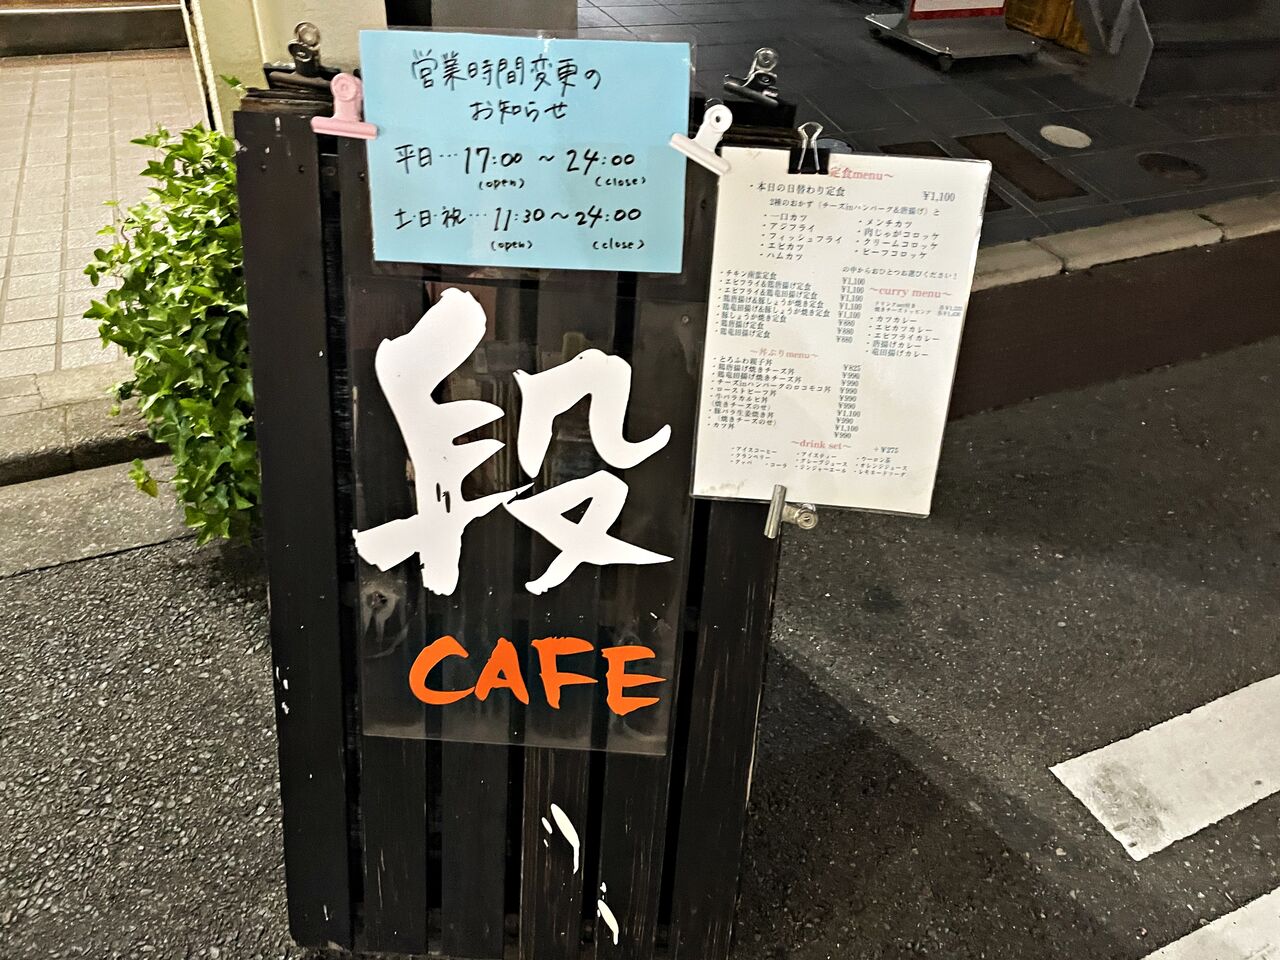 営業時間変更の
お知らせ
平日…17:00 〜 24:00
(open) (close)
土日祝…11:30〜24:00
(open) (close)
段
CAFE
定食menu〜
・本日の日替わり定食 ¥1,100
2種のおかず（チーズinハンバーグ&唐揚げ）と
・一口カツ ・メンチカツ
・アジフライ ・肉じゃがコロッケ
・フィッシュフライ ・クリームコロッケ
・エビカツ ・ビーフコロッケ
・ハムカツ
の中からおひとつお選びください！
・チキン南蛮定食 ¥1,100
・エビフライ&鶏唐揚げ定食 ¥1,100
・エビフライ&鶏竜田揚げ定食 ¥1,100
・鶏唐揚げ&豚しょうが焼き定食 ¥1,100
・鶏竜田揚げ&豚しょうが焼き定食 ¥1,100
・豚しょうが焼き定食 ¥880
・鶏唐揚げ定食 ¥880
・鶏竜田揚げ定食 ¥880
〜curry menu〜
・カツカレー
・エビカツカレー
・エビフライカレー
・唐揚げカレー
・竜田揚げカレー
〜丼ぶりmenu〜
・とろふわ親子丼 ¥825
・鶏唐揚げ焼きチーズ丼 ¥990
・鶏竜田揚げ焼きチーズ丼 ¥990
・チーズinハンバーグのロコモコ丼 ¥990
・ローストビーフ丼 ¥990
・牛バラカルビ丼 ¥990
(焼きチーズのせ) ¥1,100
・豚バラ生姜焼き丼 ¥990
(焼きチーズのせ) ¥1,100
・カツ丼 ¥990
〜drink set〜 +¥275
・アイスコーヒー ・アイスティー ・ウーロン茶
・クランベリー ・グレープジュース ・オレンジジュース
・コーラ ・ジンジャーエール ・レモネードソーダ